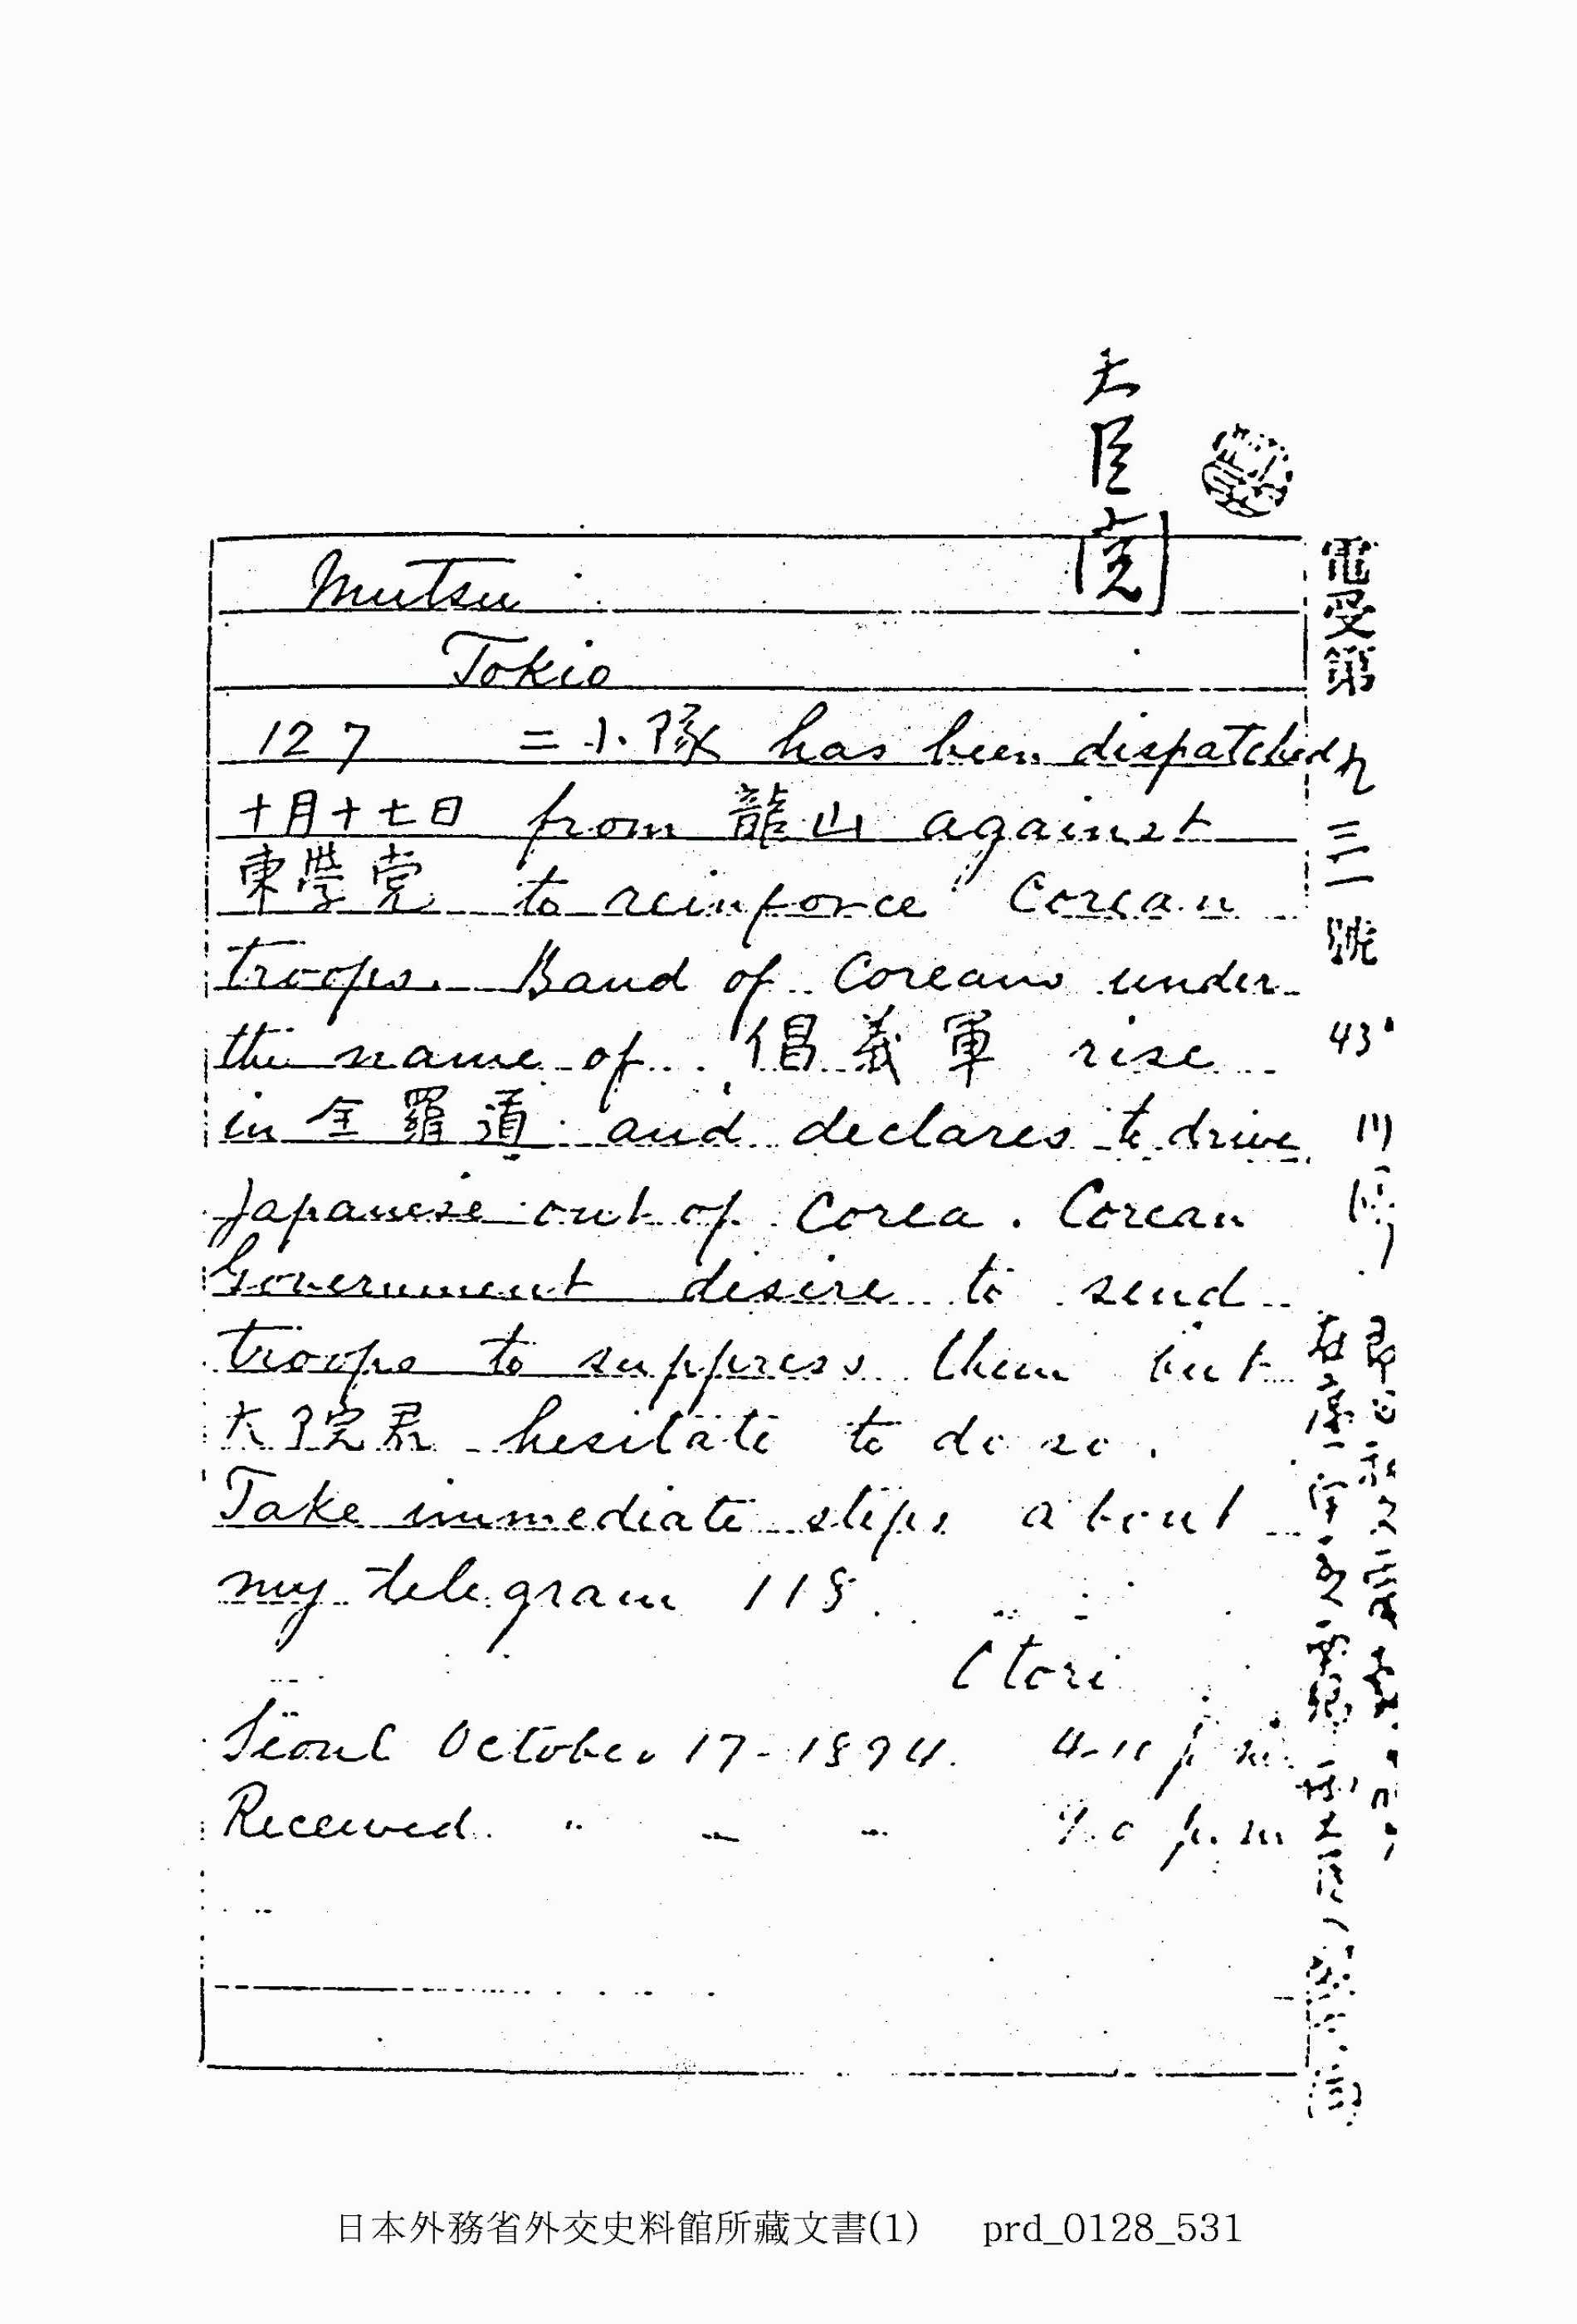 大臣
Mutsu
Tokio
127 二小隊 has been dispatched
十月十七日 from 龍山 against
東學党 to reinforce Corean
troops. Band of Coreans under
the name of 倡義軍 rise
in 全羅道 and declares to drive
Japanese out of Corea. Corean
Government desire to send
troops to suppress them but
大院君 hesitate to do so.
Take immediate steps about
my telegram 118.
Otori
Seoul October 17-1894. 4-10 p.m.
Received " " " p.m
電受第九三一號
43
日本外務省外交史料館所藏文書(1) prd_0128_531